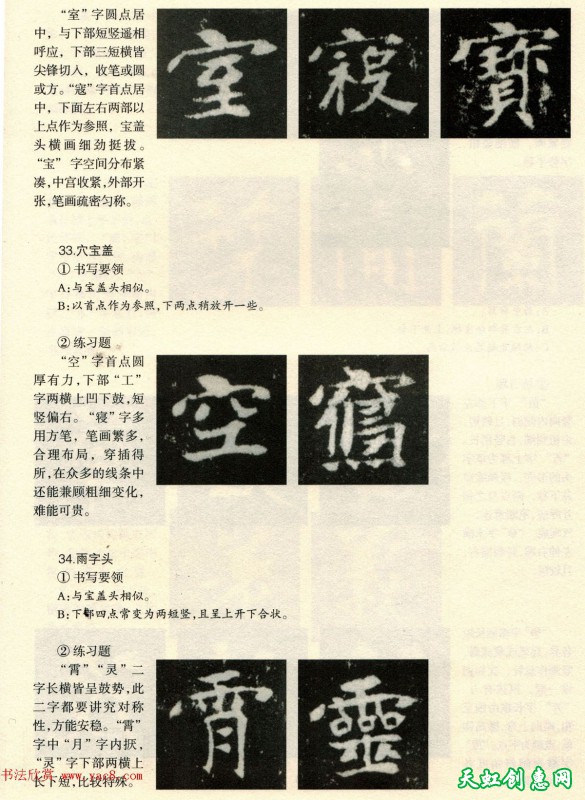 “室”字圆点居
中，与下部短竖遥相
呼应，下部三短横皆
尖锋切入，收笔或圆
或方。“寇”字首点居
中，下面左右两部以
上点作为参照，宝盖
头横画细劲挺拔。
“宝”字空间分布紧
凑，中宫收紧，外部开
张，笔画疏密匀称。
室
寶
33.穴宝盖
① 书写要领
A：与宝盖头相似。
B：以首点作为参照，下两点稍放开一些。
② 练习题
“空”字首点圆
厚有力，下部“工”
字两横上凹下鼓，短
竖偏右。“寝”字多
用方笔，笔画繁多，
合理布局，穿插得
所，在众多的线条中
还能兼顾粗细变化，
难能可贵。
空
34.雨字头
① 书写要领
A：与宝盖头相似。
B：下部四点常变为两短竖，且呈上开下合状。
② 练习题
“霄”“灵”二
字长横皆呈鼓势，此
二字都要讲究对称
性，方能安稳。“霄”
字中“月”字内抧，
“灵”字下部两横上
长下短，比较特殊。
霄
靈
书法欣赏 www.yac8.com
天虹创意网